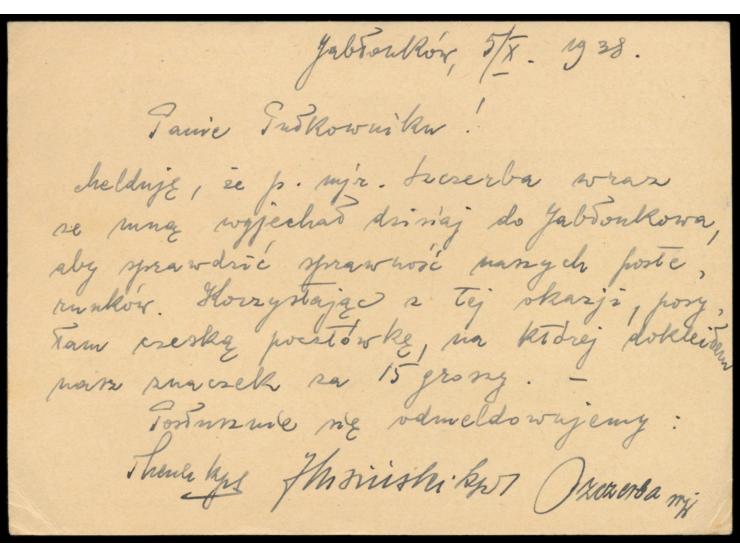 Jabłonków, 5/X. 1938.
Panie Pułkowniku!
Melduję, że p. mjr. Szczerba wraz
ze mną wyjechał dzisiaj do Jabłonkowa,
aby sprawdzić sprawność naszych poste-
runków. Korzystając z tej okazji, posy-
łam czeską pocztówkę, na której dokleiłem
nasz znaczek za 15 groszy. —
Posłusznie się odmeldowujemy:
kpt kpt Szczerba mjr